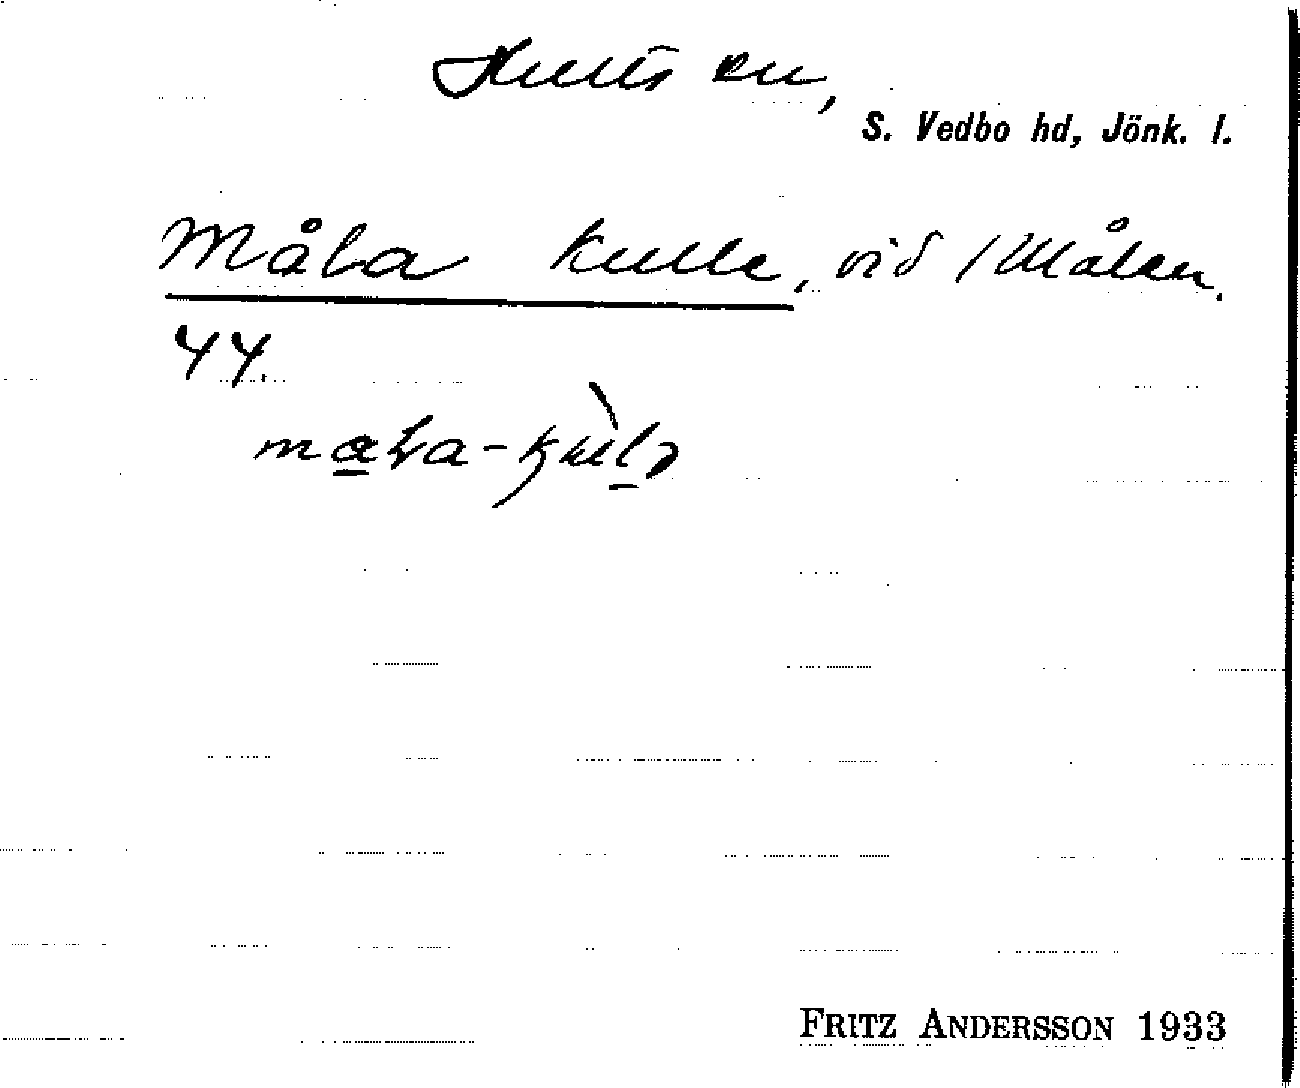 Hults sn,
S. Vedbo hd, Jönk. l.
Måla kulle, vid Målen.
44.
FRITZ ANDERSSON 1933